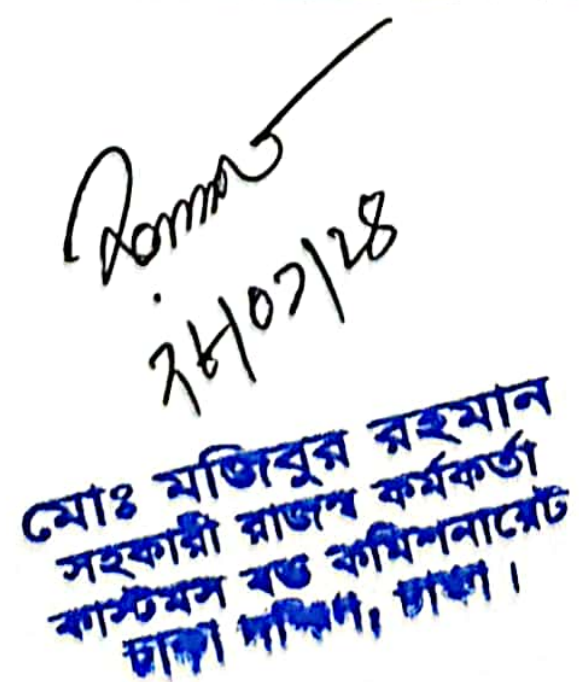 মোঃ মজিবুর রহমান
সহকারী রাজস্ব কর্মকর্তা
কাস্টমস বন্ড কমিশনারেট
ঢাকা দক্ষিণ, ঢাকা।